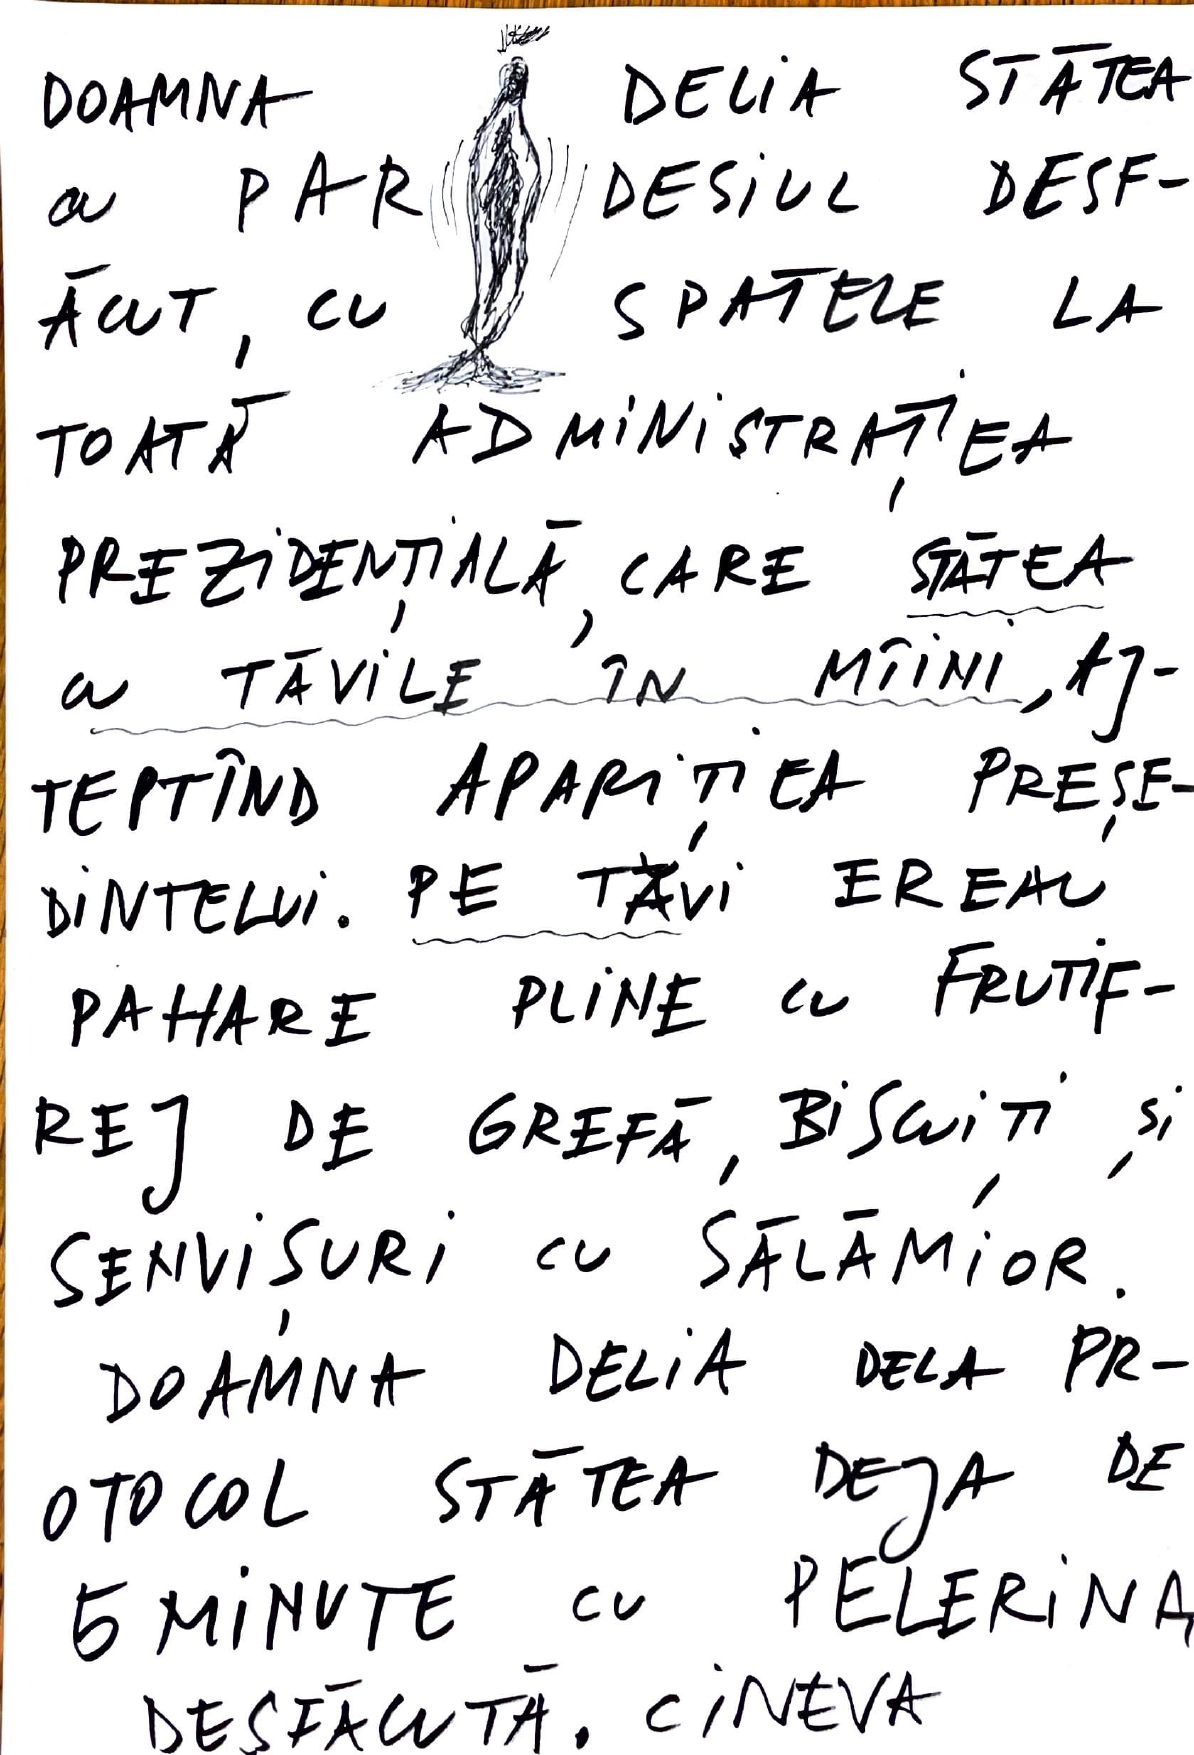 DOAMNA DELIA STĂTEA
CU PARDESIUL DESF-
ĂCUT, CU SPATELE LA
TOATĂ ADMINISTRAȚIEA
PREZIDENȚIALĂ, CARE STĂTEA
CU TĂVILE ÎN MÎINI, AJ-
TEPTÎND APARIȚIEA PREȘE-
DINTELUI. PE TĂVI EREAU
PAHARE PLINE CU FRUTIF-
REJ DE GREFĂ, BISCUIȚI ȘI
SENVIȘURI CU SĂLĂMIOR.
DOAMNA DELIA DELA PR-
OTOCOL STĂTEA DEJA DE
5 MINUTE CU PELERINA
DESFĂCUTĂ. CINEVA